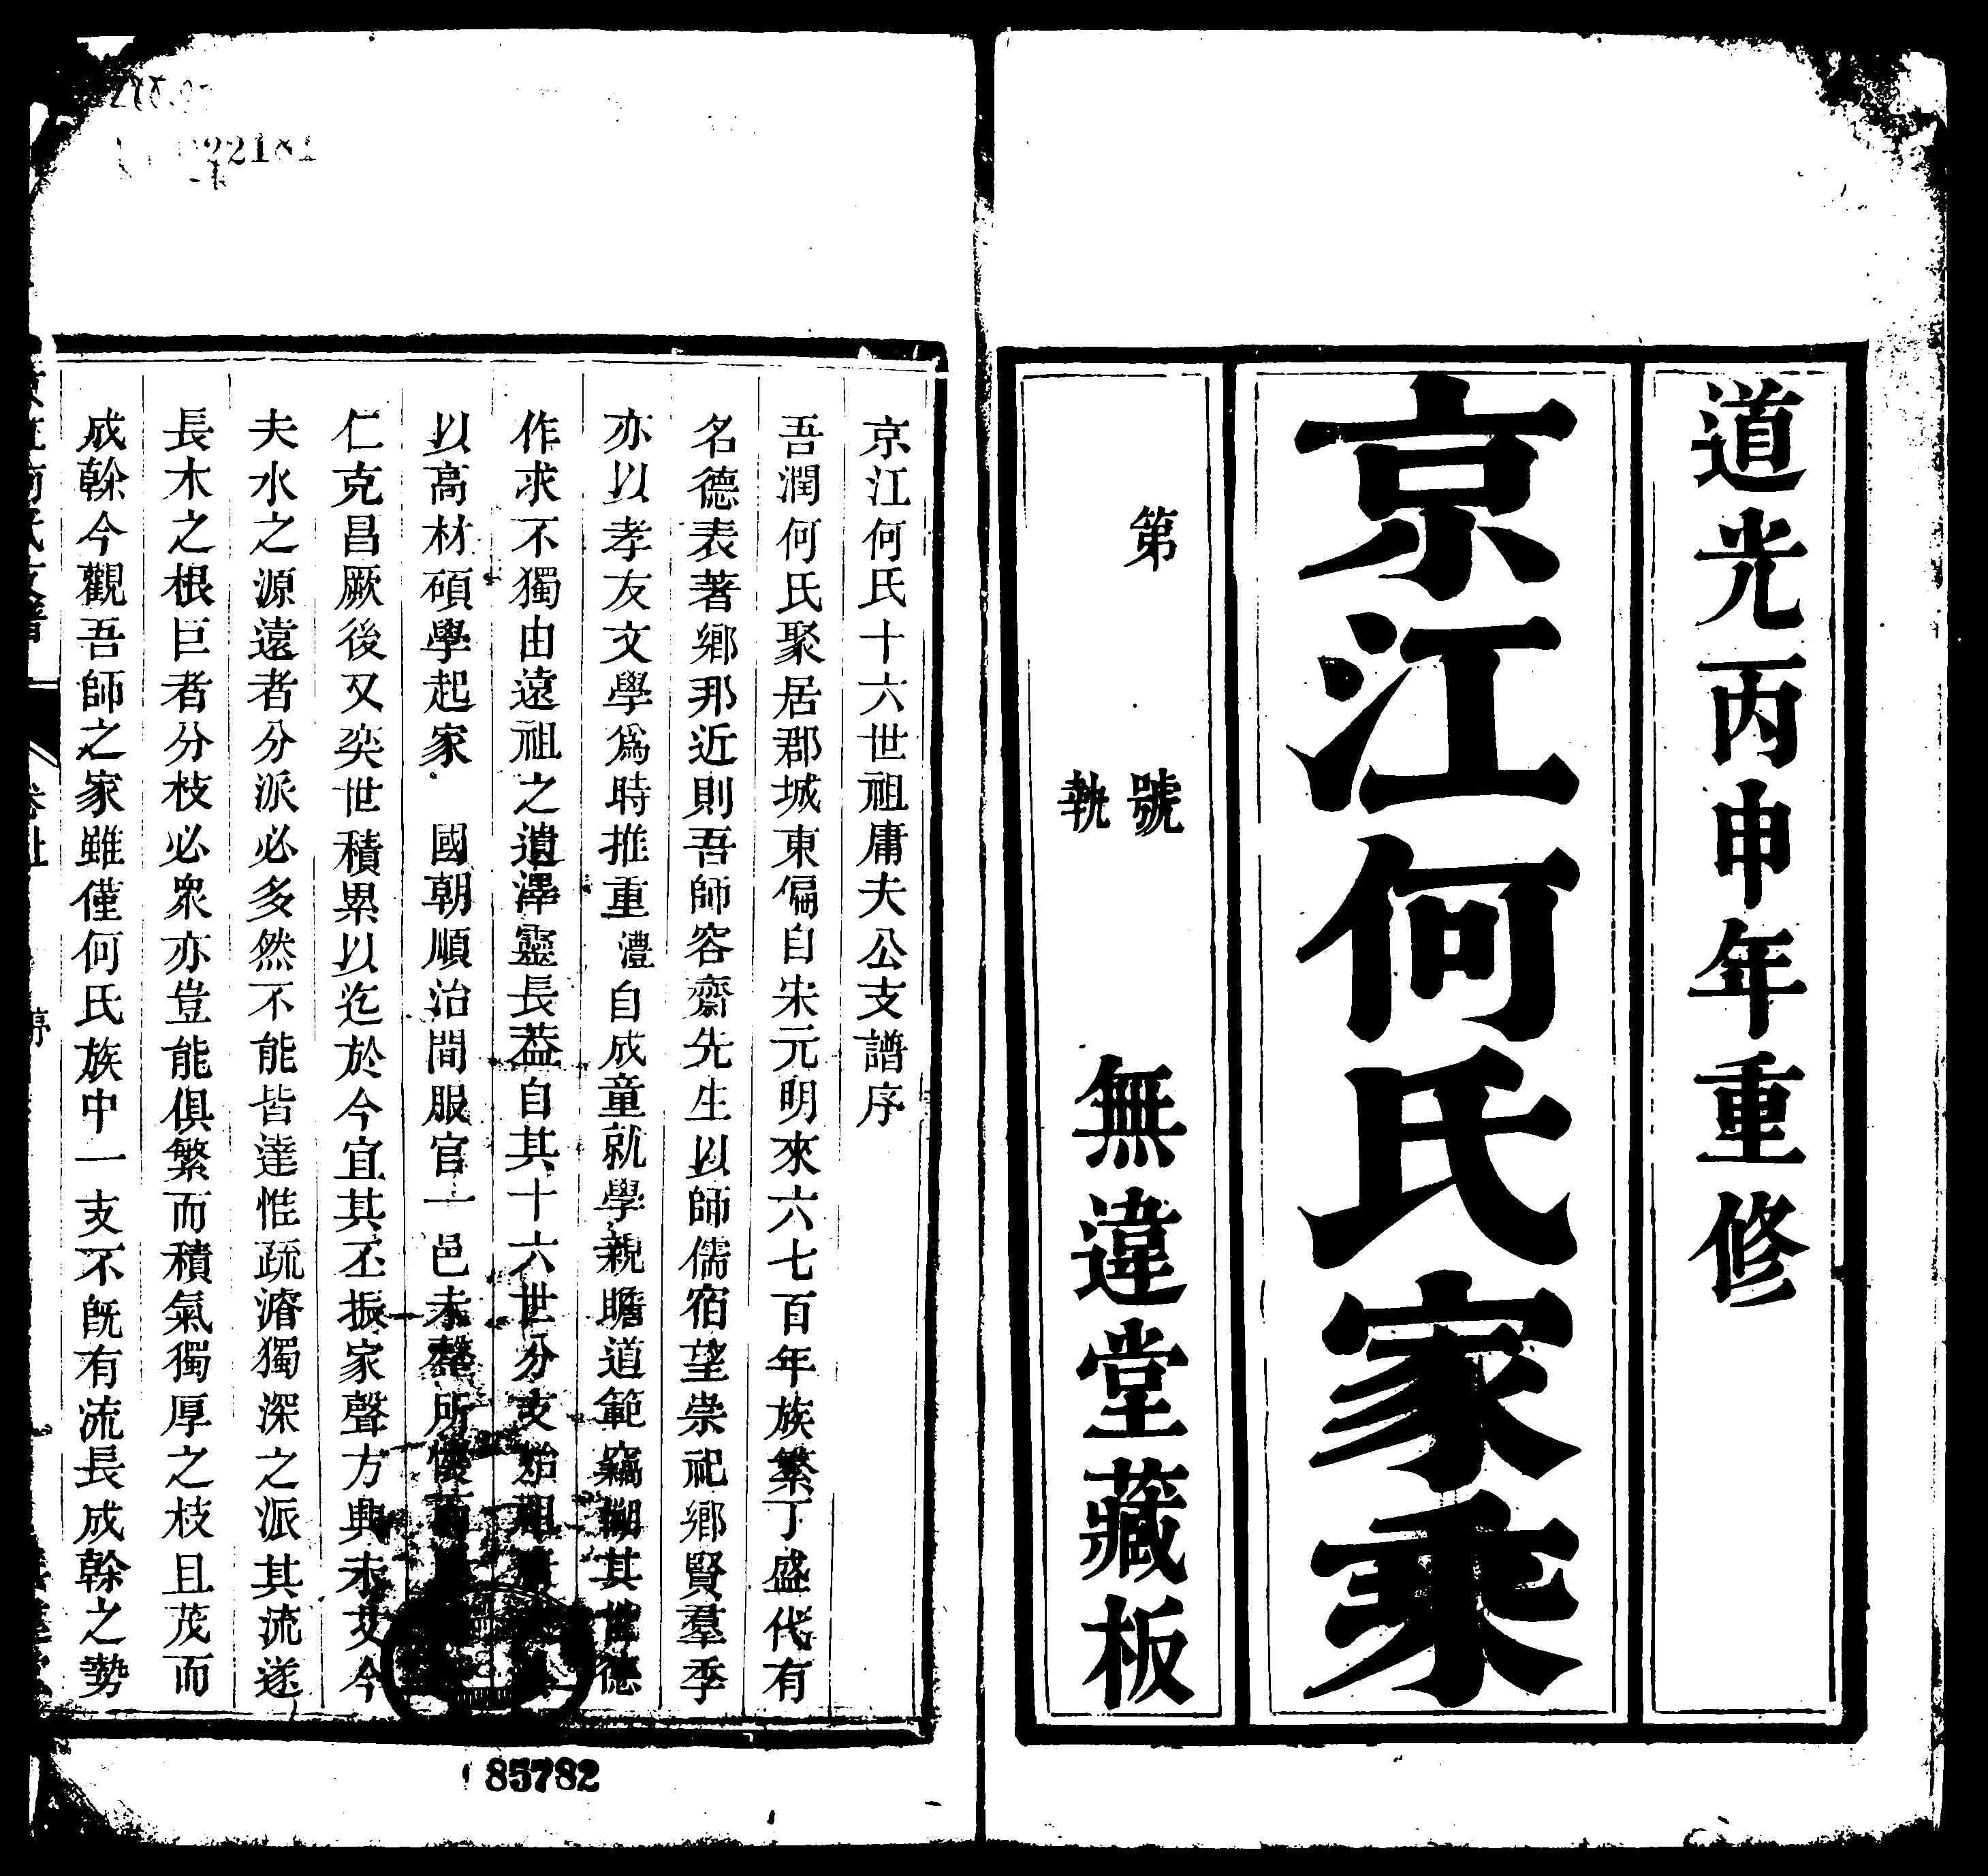 道光丙申年重修
京江何氏家乘
第　號
執
無違堂藏板
京江何氏十六世祖庸夫公支譜序
吾潤何氏聚居郡城東偏自宋元明來六七百年族繁丁盛代有
名德表著鄉邦近則吾師容齋先生以師儒宿望崇祀鄉賢羣季
亦以孝友文學爲時推重澧自成童就學親瞻道範竊
其世德
作求不獨由遠祖之遺澤靈長葢自其十六世分支始祖
以高材碩學起家　國朝順治間服官一邑未罄所
仁克昌厥後又奕世積累以迄於今宜其丕振家聲方興未艾今
夫水之源遠者分派必多然不能皆達惟疏濬獨深之派其流遂
長木之根巨者分枝必衆亦豈能俱繁而積氣獨厚之枝且茂而
成榦今觀吾師之家雖僅何氏族中一支不旣有流長成榦之勢
85782